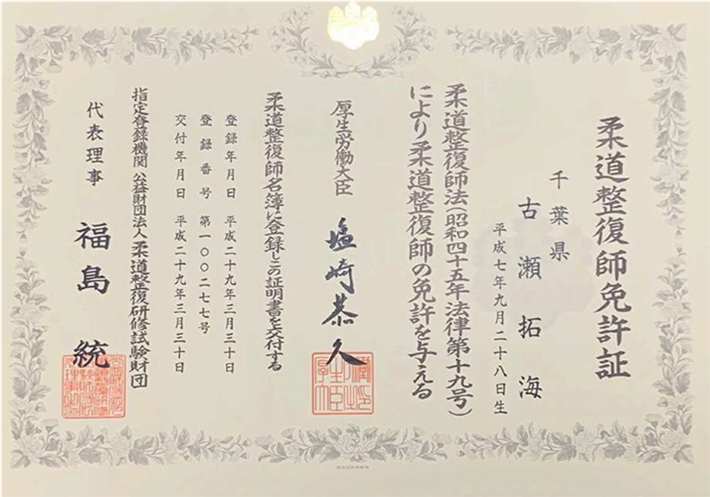 柔道整復師免許証
千葉県
古瀬拓海
平成七年九月二十八日生
柔道整復師法(昭和四十五年法律第十九号)
により柔道整復師の免許を与える
厚生労働大臣 塩崎恭久
柔道整復師名簿に登録しこの証明書を交付する
登録年月日 平成二十九年三月三十日
登録番号 第一〇〇二七七号
交付年月日 平成二十九年三月三十日
指定登録機関 公益財団法人柔道整復研修試験財団
代表理事 福島統